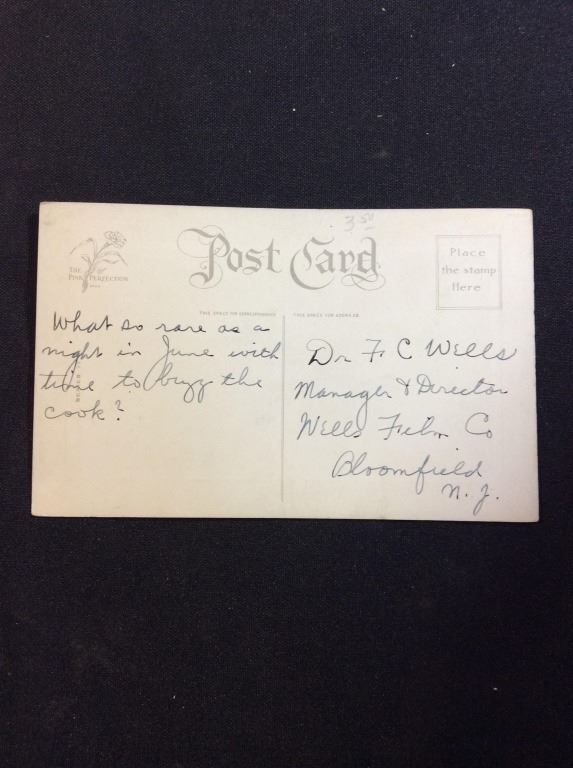 3.50
Post Card
Place
the stamp
Here
THE
PINK PERFECTION
THIS SPACE FOR CORRESPONDENCE
THIS SPACE FOR ADDRESS.
What so rare as a
night in June with
time to buzz the
cook?
Dr F C Wells
Manager & Director
Wells Film Co
Bloomfield
N. J.